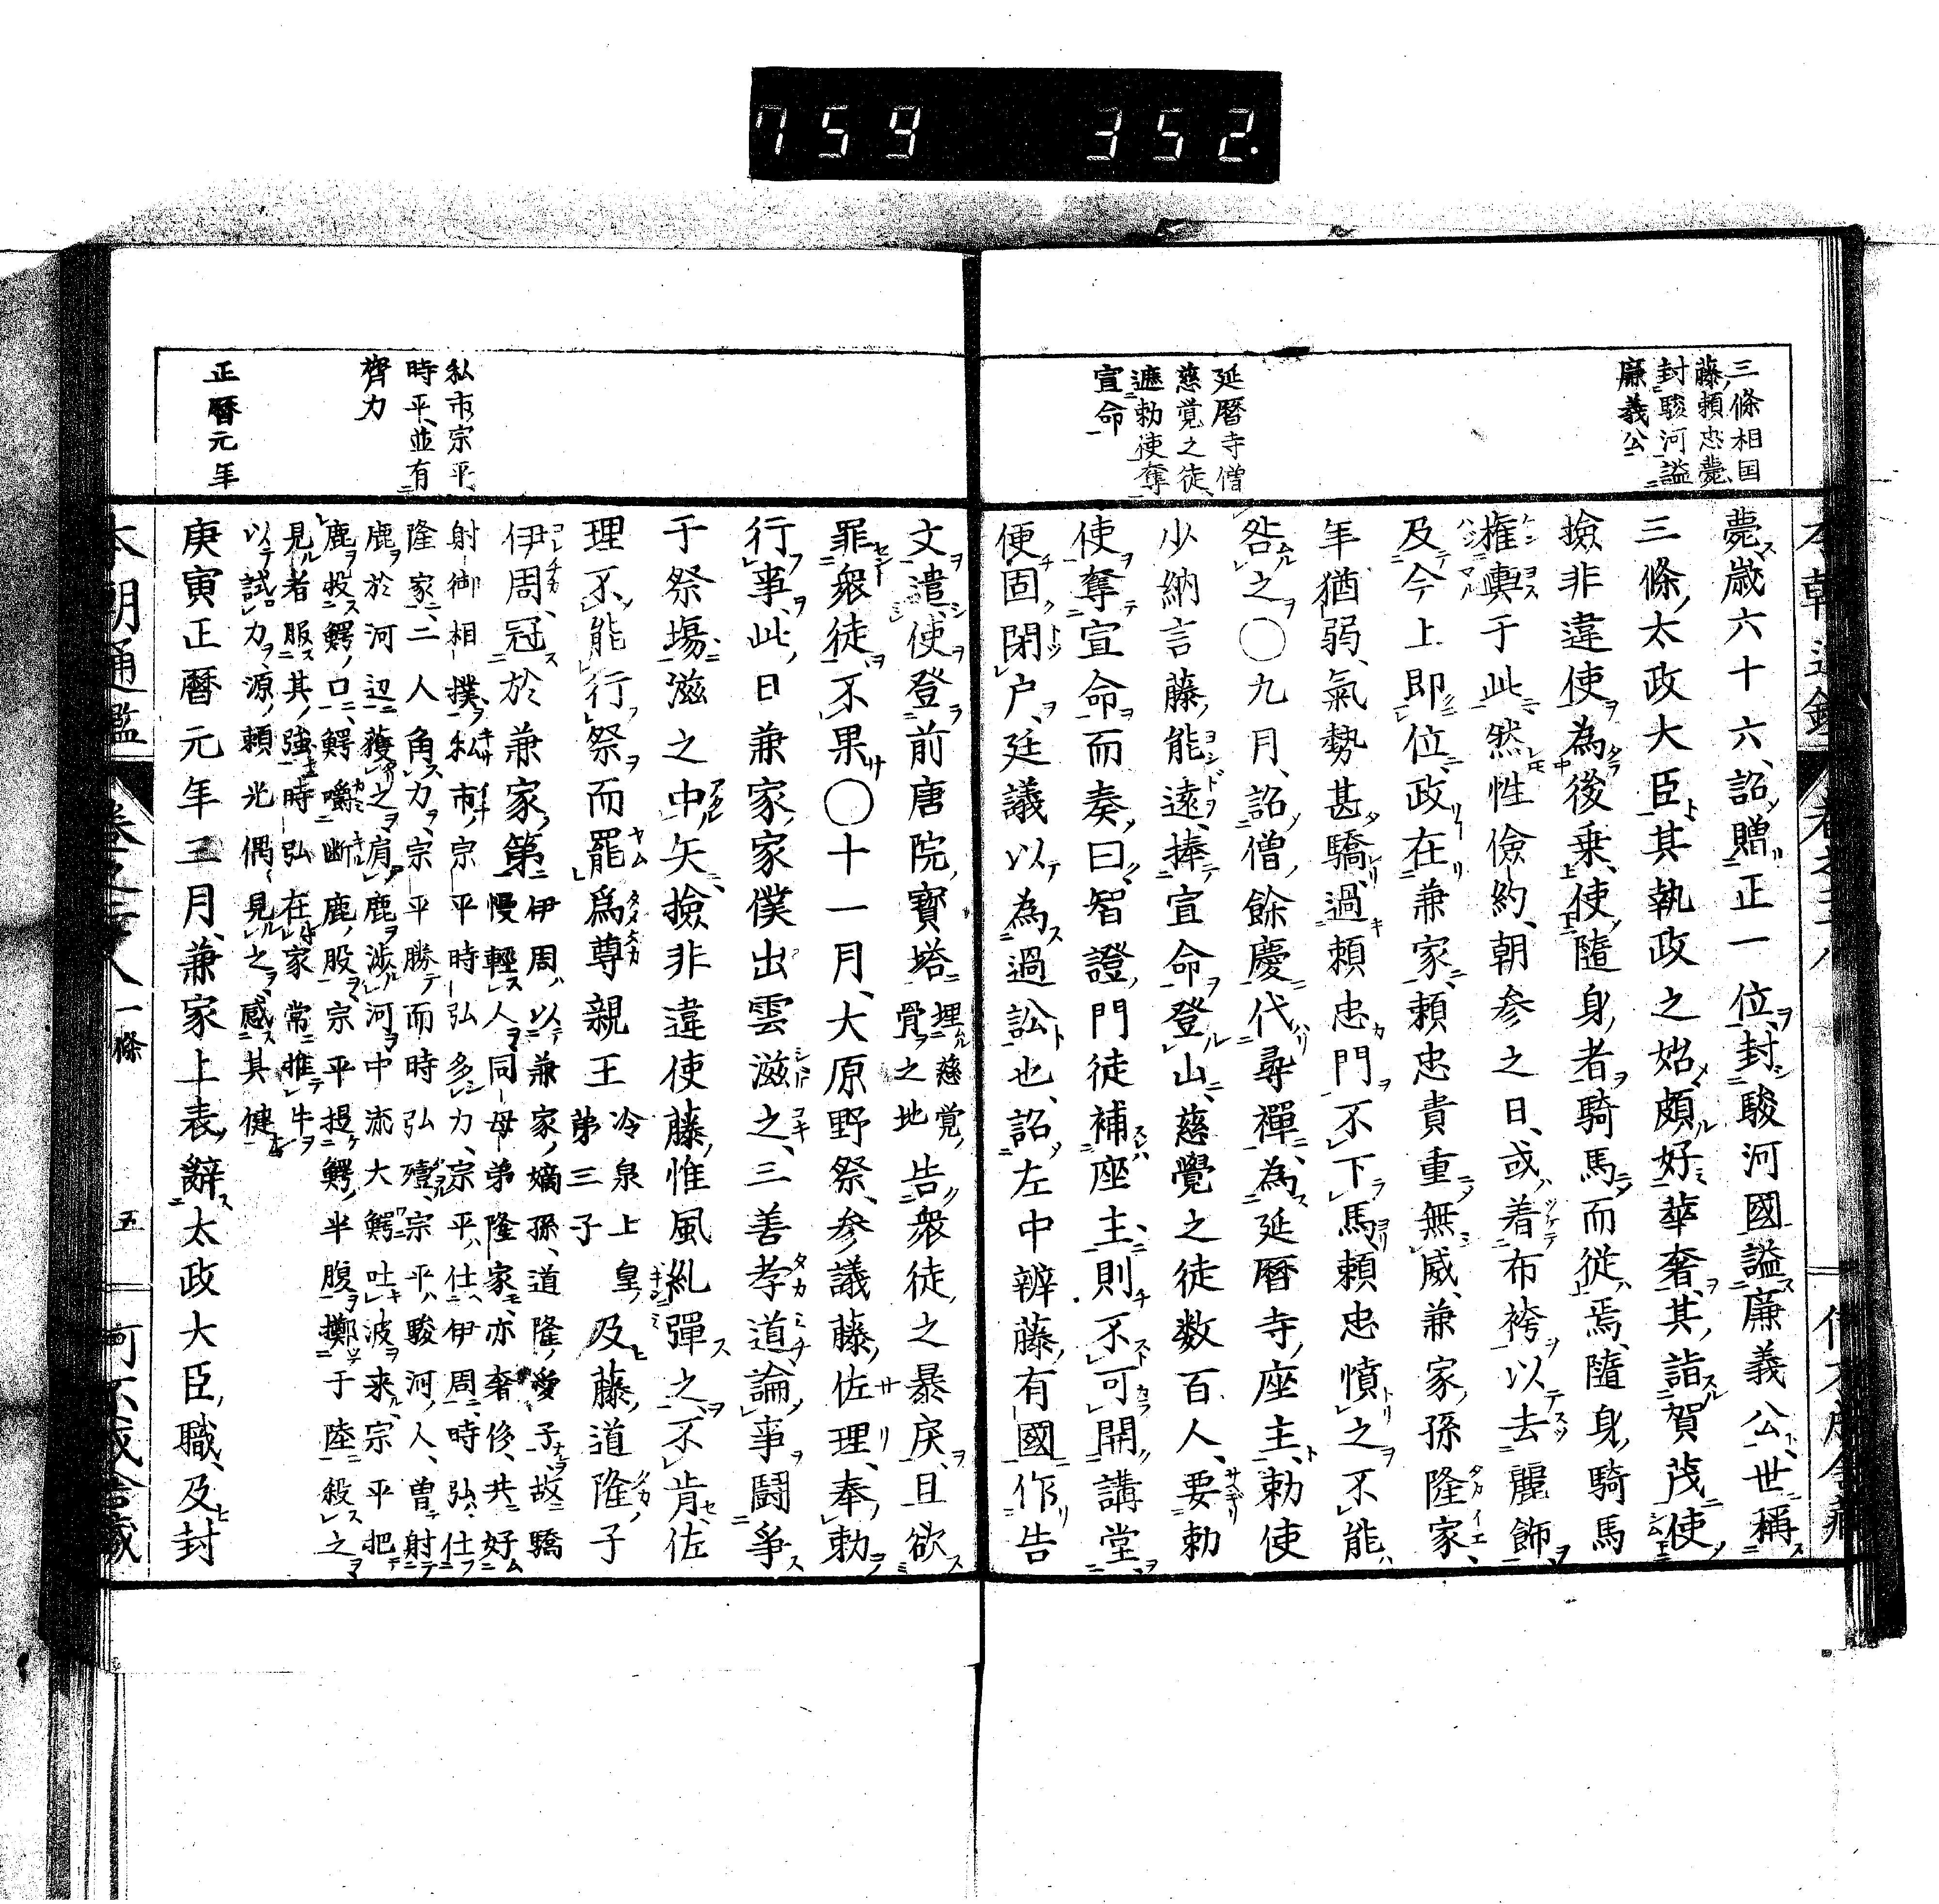 759 352.
三條相国
藤頼忠薨
封駿河謚
廉義公
薨歳六十六詔贈正一位封駿河國謚廉義公世稱
三條太政大臣其執政之始頗好華奢其詣賀茂使
撿非違使為後乗使隨身者騎馬而従焉隨身騎馬
権輿于此然性儉約朝参之日或着布袴以去麗飾
及今上即位政在兼家頼忠貴重無威兼家孫隆家
年猶弱氣勢甚驕過頼忠門不下馬頼忠憤之不能
延暦寺僧
慈覚之徒
遮勅使奪
宣命
咎之〇九月詔僧餘慶代尋禪為延暦寺座主勅使
少納言藤能遠捧宣命登山慈覺之徒数百人要勅
使奪宣命而奏曰智證門徒補座主則不可開講堂
便固閉户廷議以為過訟也詔左中辨藤有國作告
文遣使登前唐院寶塔埋慈覺骨之地告衆徒之暴戻且欲
罪衆徒不果〇十一月大原野祭参議藤佐理奉勅
行事此日兼家家僕出雲滋之三善孝道論事闘爭
于祭場滋之中矢撿非違使藤惟風糺彈之不肯佐
理不能行祭而罷為尊親王冷泉上皇第三子及藤道隆子
私市宗平
時平並有
膂力
伊周冠於兼家第伊周以兼家嫡孫道隆愛子故驕
慢輕人同母弟隆家亦奢侈共好
射御相撲私市宗平時弘多力宗平仕伊周時弘仕
隆家二人角力宗平勝而時弘殪宗平駿河人曽射
鹿於河辺獲之肩鹿渉河中流大鰐吐波来宗平把
鹿投鰐口鰐嚙断鹿股宗平提鰐半腹擲于陸殺之
見者服其強時弘在家常推牛
以試力源頼光偶見之感其健
正暦元年
庚寅正暦元年三月兼家上表辭太政大臣職及封
本朝通鑑
一條
五